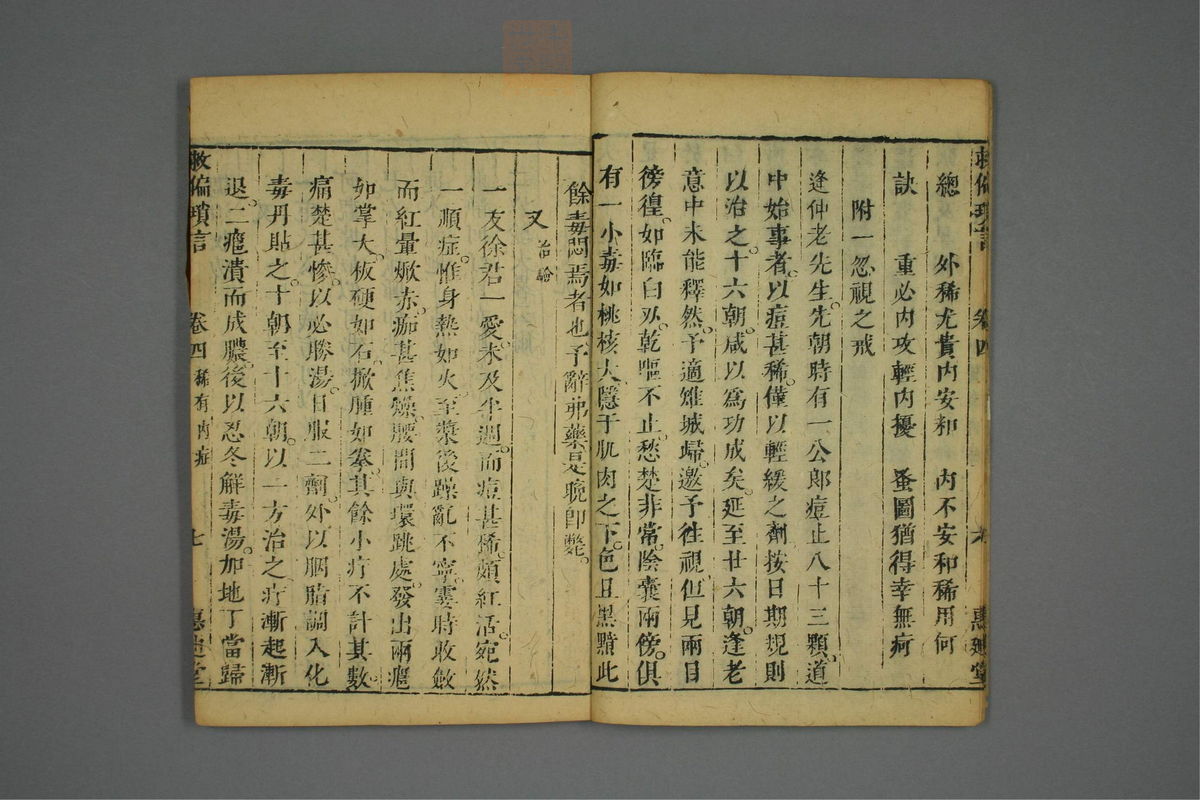 救偏瑣言 卷四 惠迪堂
總 外稀尤貴内安和 内不安和稀用何
訣 重必内攻輕内擾 蚤圖猶得幸無疴
附一忽視之戒
逢仲老先生。先朝時有一公郎痘止八十三顆。道
中始事者。以痘甚稀。僅以輕緩之劑按日期規則
以治之。十六朝。咸以爲功成矣。延至廿六朝。逢老
意中未能釋然。予適雉城歸。邀予徃視。但見兩目
徬徨。如臨白刃。乾嘔不止。愁楚非常。陰囊兩傍。俱
有一小毒如桃核大。隱于肌肉之下。色且黑黯此
餘毒悶焉者也予辭弗藥是晚卽斃。
又 治驗
一友徐君一愛。未及半週。而痘甚稀。頗紅活。宛然
一順症。惟身熱如火。至漿後躁亂不寧。霎時收斂
而紅暈焮赤。痂甚焦燥。腰間與環跳處。發出兩癰
如掌大。板硬如石。掀腫如拳。其餘小疔不計其數。
痛楚甚慘。以必勝湯。日服二劑。外以胭脂調入化
毒丹貼之。十朝至十六朝。以一方治之。疔漸起漸
退。二癰潰而成膿。後以忍冬解毒湯。加地丁當歸
救偏瑣言 卷四 稀有内症 七 惠迪堂